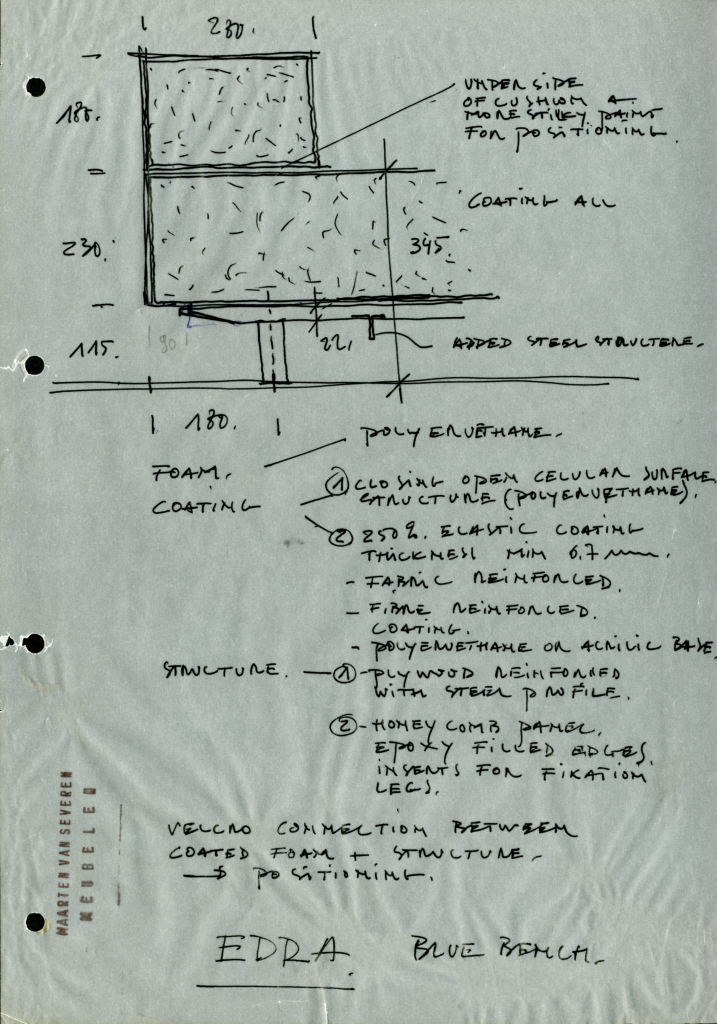 230.
UNDER SIDE
OF CUSHION A
MORE STIKEY PAINT
FOR POSITIONING.
180.
COATING ALL
230.
345.
115.
90
22,
ADDED STEEL STRUCTERE.
180.
POLYERUETHANE.
FOAM.
COATING
① CLOSING OPEN CELULAR SURFACE
STRUCTURE (POLYERURTHANE).
② 250%. ELASTIC COATING
THICKNESS MIN 0.7 mm.
- FABRIC REINFORCED.
- FIBRE REINFORCED.
COATING.
- POLYERUETHANE OR ACRILIC BASE.
STRUCTURE. — ① - PLYWOOD REINFORKED
WITH STEEL PROFILE.
② - HONEY COMB PANEL.
EPOXY FILLED EDGES,
INSERTS FOR FIKATION
LEGS.
VELCRO CONNECTION BETWEEN
COATED FOAM + STRUCTURE.
→ POSITIONING.
EDRA BLUE BENCH.
MAARTEN VAN SEVEREN
MEUBELEN